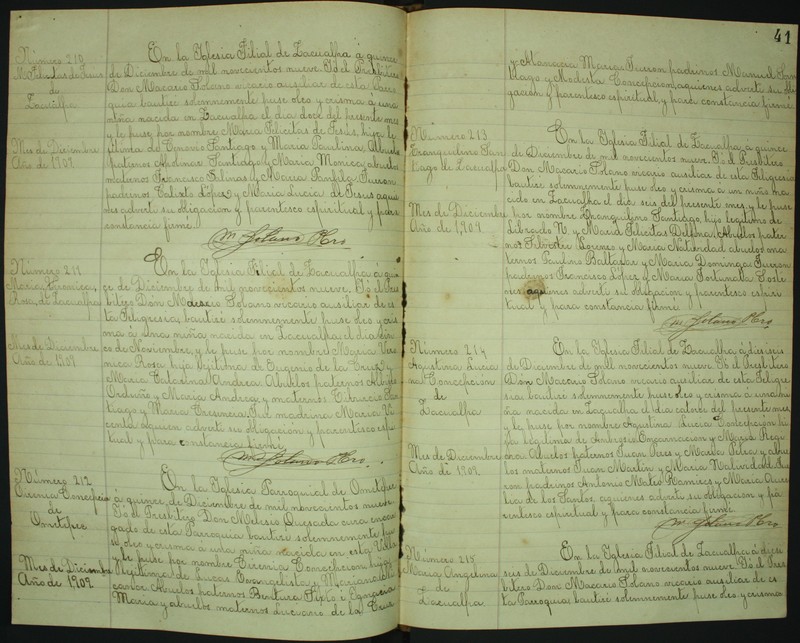 Número 210
Ma Felicitas de Jesus
de
Zacualpa
Mes de Diciembre
Año de 1909
En la Iglesia Filial de Zacualpa á quince
de Diciembre de mil novecientos nueve. Yó el Presbítero
Don Macario Solano vicario auxiliar de esta Parro
quia bautisé solemnemente puse oleo y crisma á una
niña nacida en Zacualpa el dia doce del presente mes
y le puse por nombre Maria Felicitas de Jesus, hija le
gitima de Santiago y Maria Paulina. Abuelos
paternos Santiago y Maria Monica, abuelos
maternos Francisco Salinas y Maria Fueron
padrinos Calixto López y Maria Lucia de Jesus aquie
nes advertí su obligacion y parentesco espiritual y para
constancia firmé.
M. Solano Pbro
Número 211
Maria Veronica
Rosa, de Zacualpa
Mes de Diciembre
Año de 1909
En la Iglesia Filial de Zacualpa á quin
ce de Diciembre de mil novecientos nueve. Yó el Pres
bítero Don Macario Solano vicario auxiliar de es
ta Feligrecia, bautisé solemnemente puse oleo y cris
ma á una niña nacida en Zacualpa el dia
de Noviembre, y le puse por nombre Maria Vero
nica Rosa hija legítima de Eugenio de la Cruz y
Maria Catarina Andrea. Abuelos paternos
Orduño y Maria Andrea y maternos Tiburcio San
tiago y Maria Su madrina Maria Vi
centa aquien advertí su obligacion y parentesco espiri
tual y para constancia firmé.
M. Solano Pbro.
Número 212
Eremia Concepcion
de
Ometepec
Mes de Diciembre
Año de 1,909
En la Iglesia Parroquial de Ometepec
á quince, de Diciembre de mil novecientos nueve.
Yó el Presbítero Don Melesio Quezada cura encar
gado de esta Parroquia bautisé solemnemente pu
se oleo y crisma á una niña nacida en esta Villa
y le puse por nombre Eremia Concepcion, hija
legítima de Lucas Evangelista y Mariana
Abuelos paternos Bentura Sixto é Egnacia
Maria y abuelos maternos Luciano de la Cruz
41
y Atanacia Maria. Fueron padrinos Manuel San
tiago y Modesta Concepcion, aquienes advertí su obli
gacion y parentesco espiritual, y para constancia firmé
Número 213
Tranquilino San
tiago de Zacualpa
Mes de Diciembre
Año de 1,909
En la Iglesia Filial de Zacualpa á quince
de Diciembre de mil novecientos nueve. Yó el Presbítero
Don Macario Solano vicario auxiliar de esta Feligrecia
bautisé solemnemente puse oleo y crisma á un niño na
cido en Zacualpa el dia seis del presente mes, y le puse
por nombre Tranquilino Santiago, hijo legítimo de
Librado N. y Maria Felicitas Delfina. Abuelos pater
nos Silvestre Lorenzo y Maria Natividad abuelos ma
ternos Paulino Baltazar y Maria Dominga. Fueron
padrinos Francisco López y Maria Fortunata
aquienes advertí su obligacion y parentesco espiri
tual y para constancia firmé
M. Solano Pbro
Número 214
Agustina Lucia
Concepcion
de
Zacualpa
Mes de Diciembre
Año de 1,909.
En la Iglesia Filial de Zacualpa á diesiseis
de Diciembre de mil novecientos nueve. Yó el Presbítero
Don Macario Solano vicario auxiliar de esta Feligre
sia bautisé solemnemente puse oleo y crisma á una ni
ña nacida en Zacualpa el dia catorce del presente mes,
y le puse por nombre Agustina Lucia Concepcion hi
ja legítima de Ambrosio Encarnacion y Maria
Abuelos paternos Juan Peres y Maria Petra y abue
los maternos Juan Martin y Maria Natividad. Fue
ron padrinos Antonio Mateo Ramires y Maria
de los Santos, aquienes advertí su obligacion y pa
rentesco espiritual y para constancia firmé.
M. Solano Pbro
Número 215
Maria Angelina
de
Zacualpa
En la Iglesia Filial de Zacualpa á diesi
seis de Diciembre de mil novecientos nueve. Yó el Pres
bítero Don Macario Solano vicario auxiliar de es
ta Parroquia bautisé solemnemente puse oleo y crisma